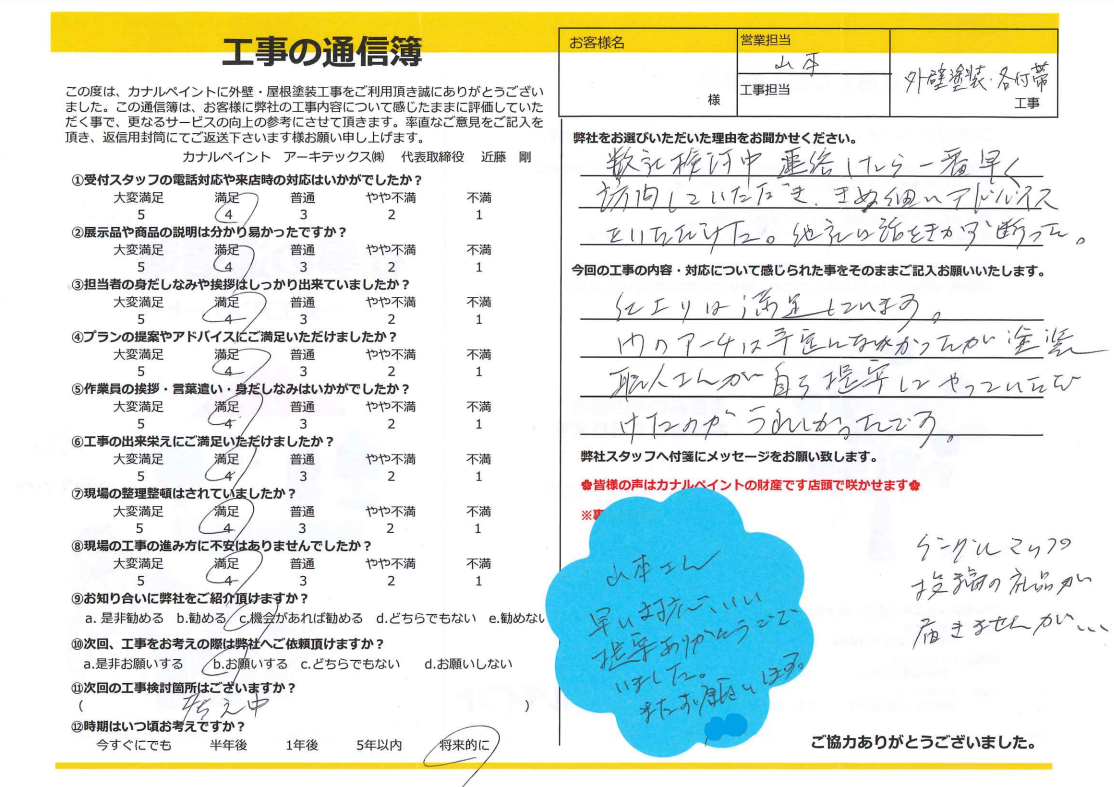 工事の通信簿
この度は、カナルペイントに外壁・屋根塗装工事をご利用頂き誠にありがとうござい
ました。この通信簿は、お客様に弊社の工事内容について感じたままに評価していた
だく事で、更なるサービスの向上の参考にさせて頂きます。率直なご意見をご記入を
頂き、返信用封筒にてご返送下さいます様お願い申し上げます。
カナルペイント アーキテックス㈱ 代表取締役 近藤 剛
①受付スタッフの電話対応や来店時の対応はいかがでしたか？
大変満足 満足 普通 やや不満 不満
5 4 3 2 1
②展示品や商品の説明は分かり易かったですか？
大変満足 満足 普通 やや不満 不満
5 4 3 2 1
③担当者の身だしなみや挨拶はしっかり出来ていましたか？
大変満足 満足 普通 やや不満 不満
5 4 3 2 1
④プランの提案やアドバイスにご満足いただけましたか？
大変満足 満足 普通 やや不満 不満
5 4 3 2 1
⑤作業員の挨拶・言葉遣い・身だしなみはいかがでしたか？
大変満足 満足 普通 やや不満 不満
5 4 3 2 1
⑥工事の出来栄えにご満足いただけましたか？
大変満足 満足 普通 やや不満 不満
5 4 3 2 1
⑦現場の整理整頓はされていましたか？
大変満足 満足 普通 やや不満 不満
5 4 3 2 1
⑧現場の工事の進み方に不安はありませんでしたか？
大変満足 満足 普通 やや不満 不満
5 4 3 2 1
⑨お知り合いに弊社をご紹介頂けますか？
a. 是非勧める b.勧める c.機会があれば勧める d.どちらでもない e.勧めない
⑩次回、工事をお考えの際は弊社へご依頼頂けますか？
a.是非お願いする b.お願いする c.どちらでもない d.お願いしない
⑪次回の工事検討箇所はございますか？
( 考え中 )
⑫時期はいつ頃お考えですか？
今すぐにでも 半年後 1年後 5年以内 将来的に
お客様名
様
営業担当
山本
工事担当
外壁塗装・各付帯
工事
弊社をお選びいただいた理由をお聞かせください。
数社検討中 連絡したら一番早く
訪問していただき、きめ細いアドバイス
をいただけた。他社は話をきかず断った。
今回の工事の内容・対応について感じられた事をそのままご記入お願いいたします。
仕上りは満足しています。
門のアーチは予定になかったが塗装
職人さんが自ら提案してやっていただ
けたのがうれしかったです。
弊社スタッフへ付箋にメッセージをお願い致します。
✿皆様の声はカナルペイントの財産です店頭で咲かせます✿
山本さん
早い対応、いい
提案ありがとうござ
いました。
またお願いします。
グーグルマップの
投稿の礼品が
届きませんが、、、
ご協力ありがとうございました。